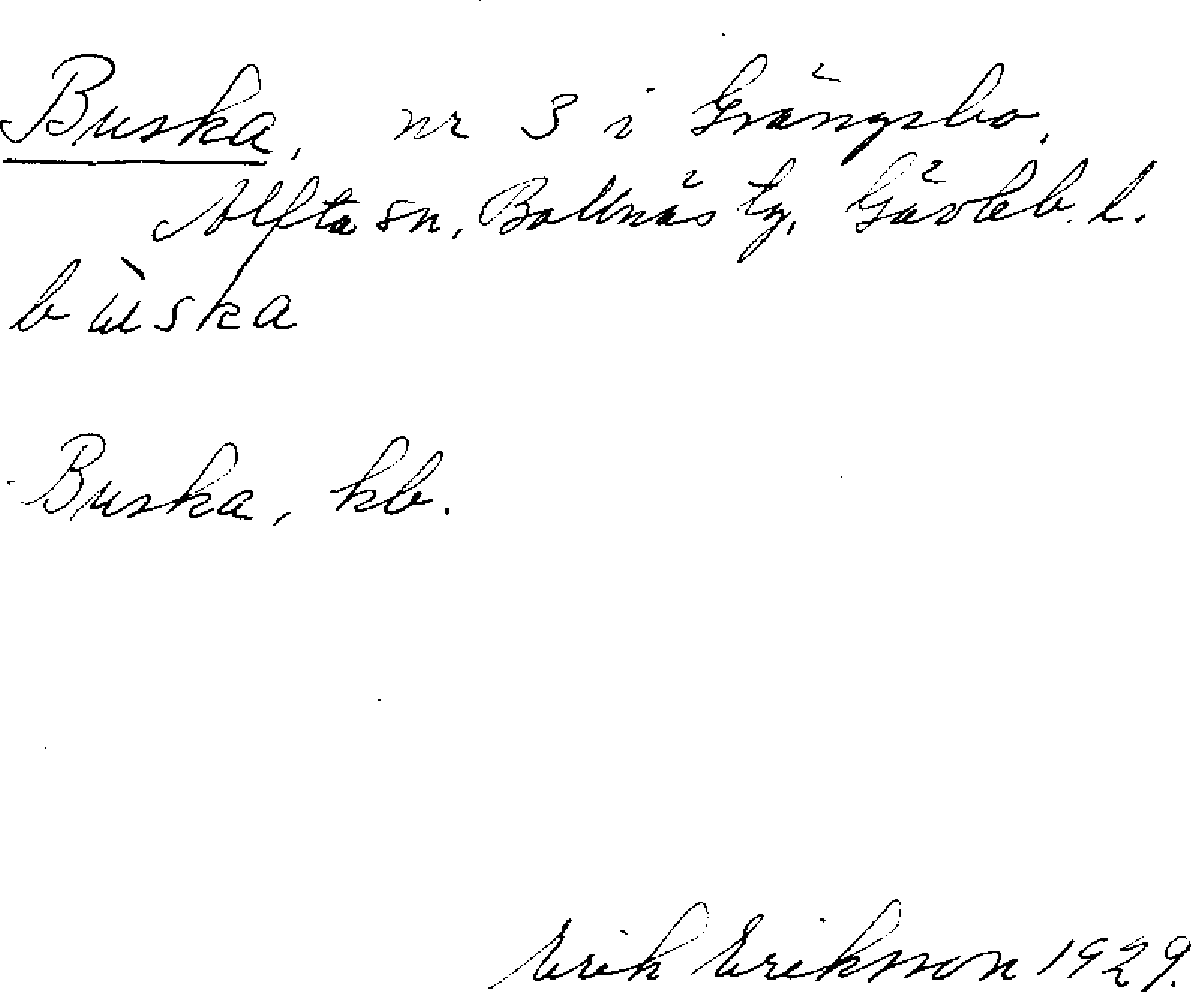 Buska, nr 3 i Grängsbo,
Alfta sn, Bollnäs tg, Gävleb. l.
bùska
Buska, kb.
Erik Eriksson 1929.